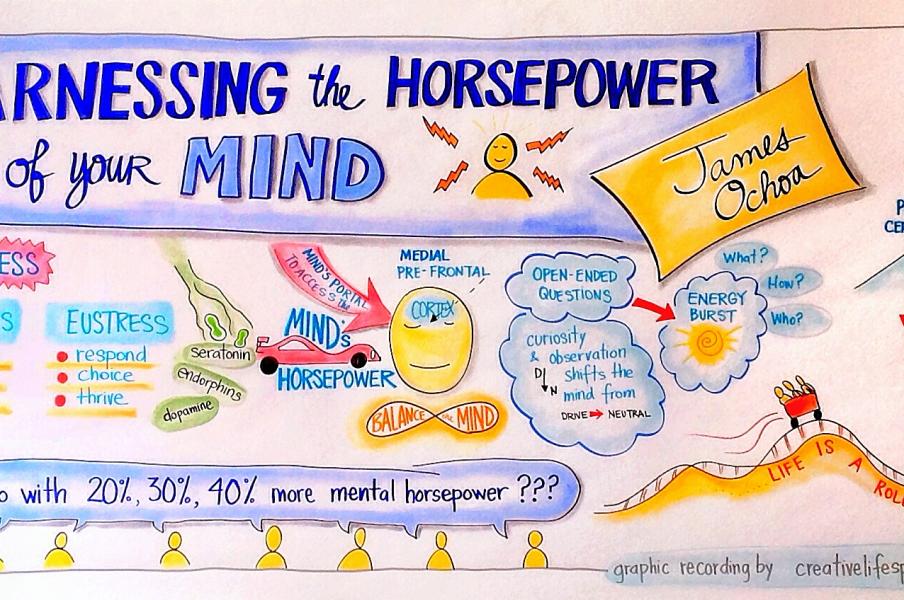 ARNESSING the HORSEPOWER
of your MIND
James
Ochoa
ESS
S
EUSTRESS
respond
choice
thrive
seratonin
endorphins
dopamine
MIND'S PORTAL
TO ACCESS the
MIND's
HORSEPOWER
MEDIAL
PRE-FRONTAL
CORTEX
BALANCE the MIND
OPEN-ENDED
QUESTIONS
curiosity
& observation
D shifts the
N mind from
DRIVE NEUTRAL
ENERGY
BURST
What?
How?
Who?
P
CE
LIFE IS A
ROL
o with 20%, 30%, 40% more mental horsepower ???
graphic recording by creativelifesp